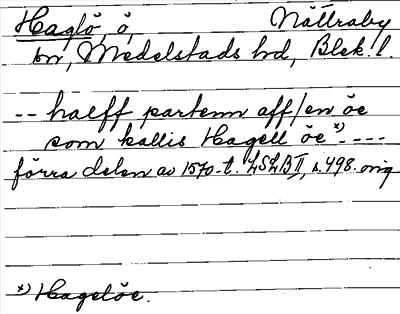 Haglö, ö, Nättraby
sn, Medelstads hd, Blek. l.
-- halff partenn aff/en öe
som kallis Hagell öe x) ----
förra delen av 1570-t. LSLB II, s. 498. orig
x) Hagelöe.